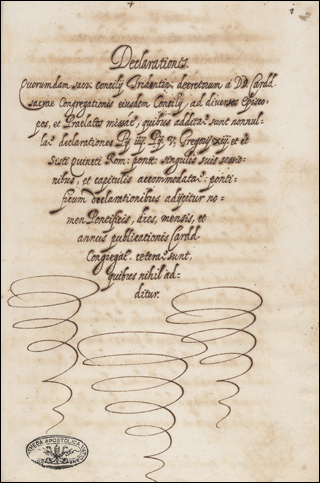 1
Declarationes.
Quorumdam sacr. Concilij Tridentini decretorum a DD. Cardd.
sacrae Congregationis eiusdem Concilij, ad diversos Episco-
pos, et Praelatos missae, quibus additae sunt nonnul-
lae declarationes Pij iiij. Pij. V. Gregorij xiij. et et
Sixti Quinti Rom: pontt: singulis suis sessio-
nibus, et capitulis accommodatae: ponti-
ficum declarationibus adijcitur no-
men Pontificis, dies, mensis, et
annus publicationis Cardd.
Congregat. ceterae sunt,
quibus nihil ad-
ditur.
APOSTOLICA